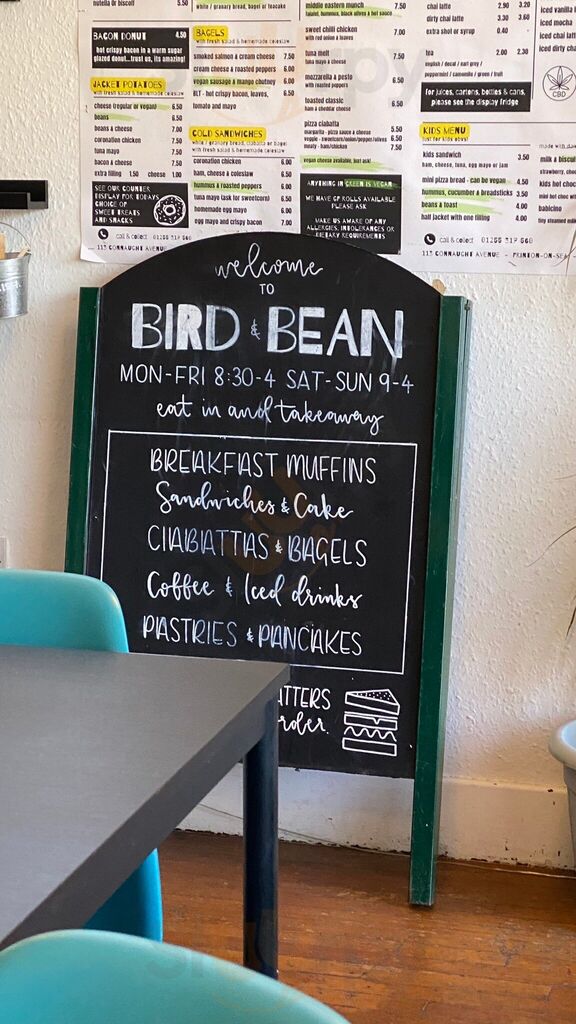 nutella or biscoff 5.50
BACON DONUT 4.50
hot crispy bacon in a warm sugar
glazed donut...trust us, its amazing!
JACKET POTATOES
with fresh salad & homemade coleslaw
cheese (regular or vegan) 6.50
beans 6.50
beans & cheese 7.00
coronation chicken 7.50
tuna mayo 7.50
bacon & cheese 7.50
extra filling 1.50 cheese 1.00
SEE OUR COUNTER
DISPLAY FOR TODAYS
CHOICE OF
SWEET TREATS
AND SNACKS
call & collect 01255 319 560
113 CONNAUGHT AVENUE
white / granary bread, bagel or teacake
BAGELS
with fresh salad & homemade coleslaw
smoked salmon & cream cheese 7.50
cream cheese & roasted peppers 6.50
vegan sausage & mango chutney 6.50
BLT - hot crispy bacon, leaves, 6.50
tomato and mayo
COLD SANDWICHES
white / granary bread, ciabatta or bagel
with fresh salad & homemade coleslaw
coronation chicken 6.00
ham, cheese & coleslaw 6.50
hummus & roasted peppers 6.00
tuna mayo (ask for sweetcorn) 6.50
homemade egg mayo 6.00
egg mayo and crispy bacon 7.00
middle eastern munch 7.00
falafel, hummus, black olives & hot sauce
sweet chilli chicken 7.00
with red onion & leaves
tuna melt 7.50
tuna mayo & cheese
mozzarella & pesto 6.50
with roasted peppers
toasted classic 6.50
ham & cheddar cheese
pizza ciabatta
margarita - pizza sauce & cheese 5.50
veggie - sweetcorn/onion/pepper/olives 6.50
meaty - ham/chicken 7.50
vegan cheese available, just ask!
ANYTHING IN GREEN IS VEGAN
WE HAVE GF ROLLS AVAILABLE
PLEASE ASK
MAKE US AWARE OF ANY
ALLERGIES, INTOLERANCES OR
DIETARY REQUIREMENTS
chai latte 2.90 3.20
dirty chai latte 3.30 3.60
extra shot or syrup 0.40
tea 2.00 2.30
english / decaf / earl grey /
peppermint / camomile / green / fruit
for juices, cartons, bottles & cans,
please see the display fridge
KIDS MENU
just for kids ones!
kids sandwich 3.50
ham, cheese, tuna, egg mayo or jam
mini pizza bread - can be vegan 4.50
hummus, cucumber & breadsticks 3.50
beans & toast 4.00
half jacket with one filling 4.00
call & collect 01255 319 560
113 CONNAUGHT AVENUE - FRINTON-ON-SEA
iced vanilla
iced mocha
iced chai lat
iced dirty ch
CBD
made with
milk & biscui
strawberry, choc
kids hot choc
mini hot choc
babicino
tiny steamed milk
welcome
TO
BIRD & BEAN
MON-FRI 8:30-4 SAT-SUN 9-4
eat in and takeaway
BREAKFAST MUFFINS
Sandwiches & Cake
CIABATTAS & BAGELS
Coffee & Iced drinks
PASTRIES & PANCAKES
ATTERS
rder.